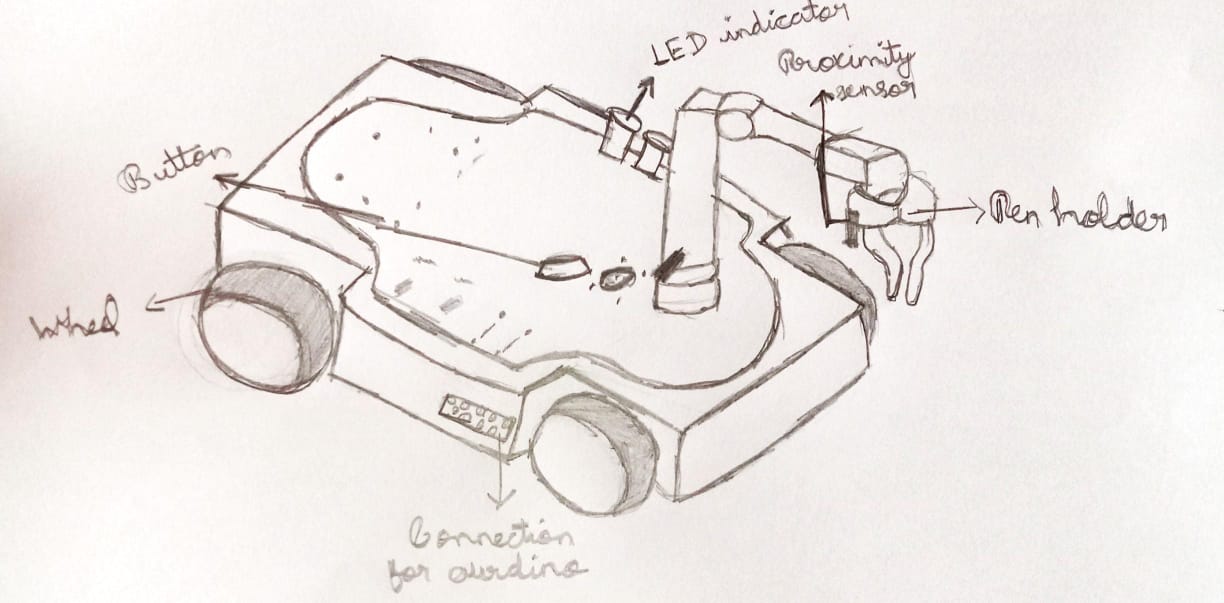 LED indicator
Proximity
sensor
Button
Pen holder
Wheel
Connection
for aurdino